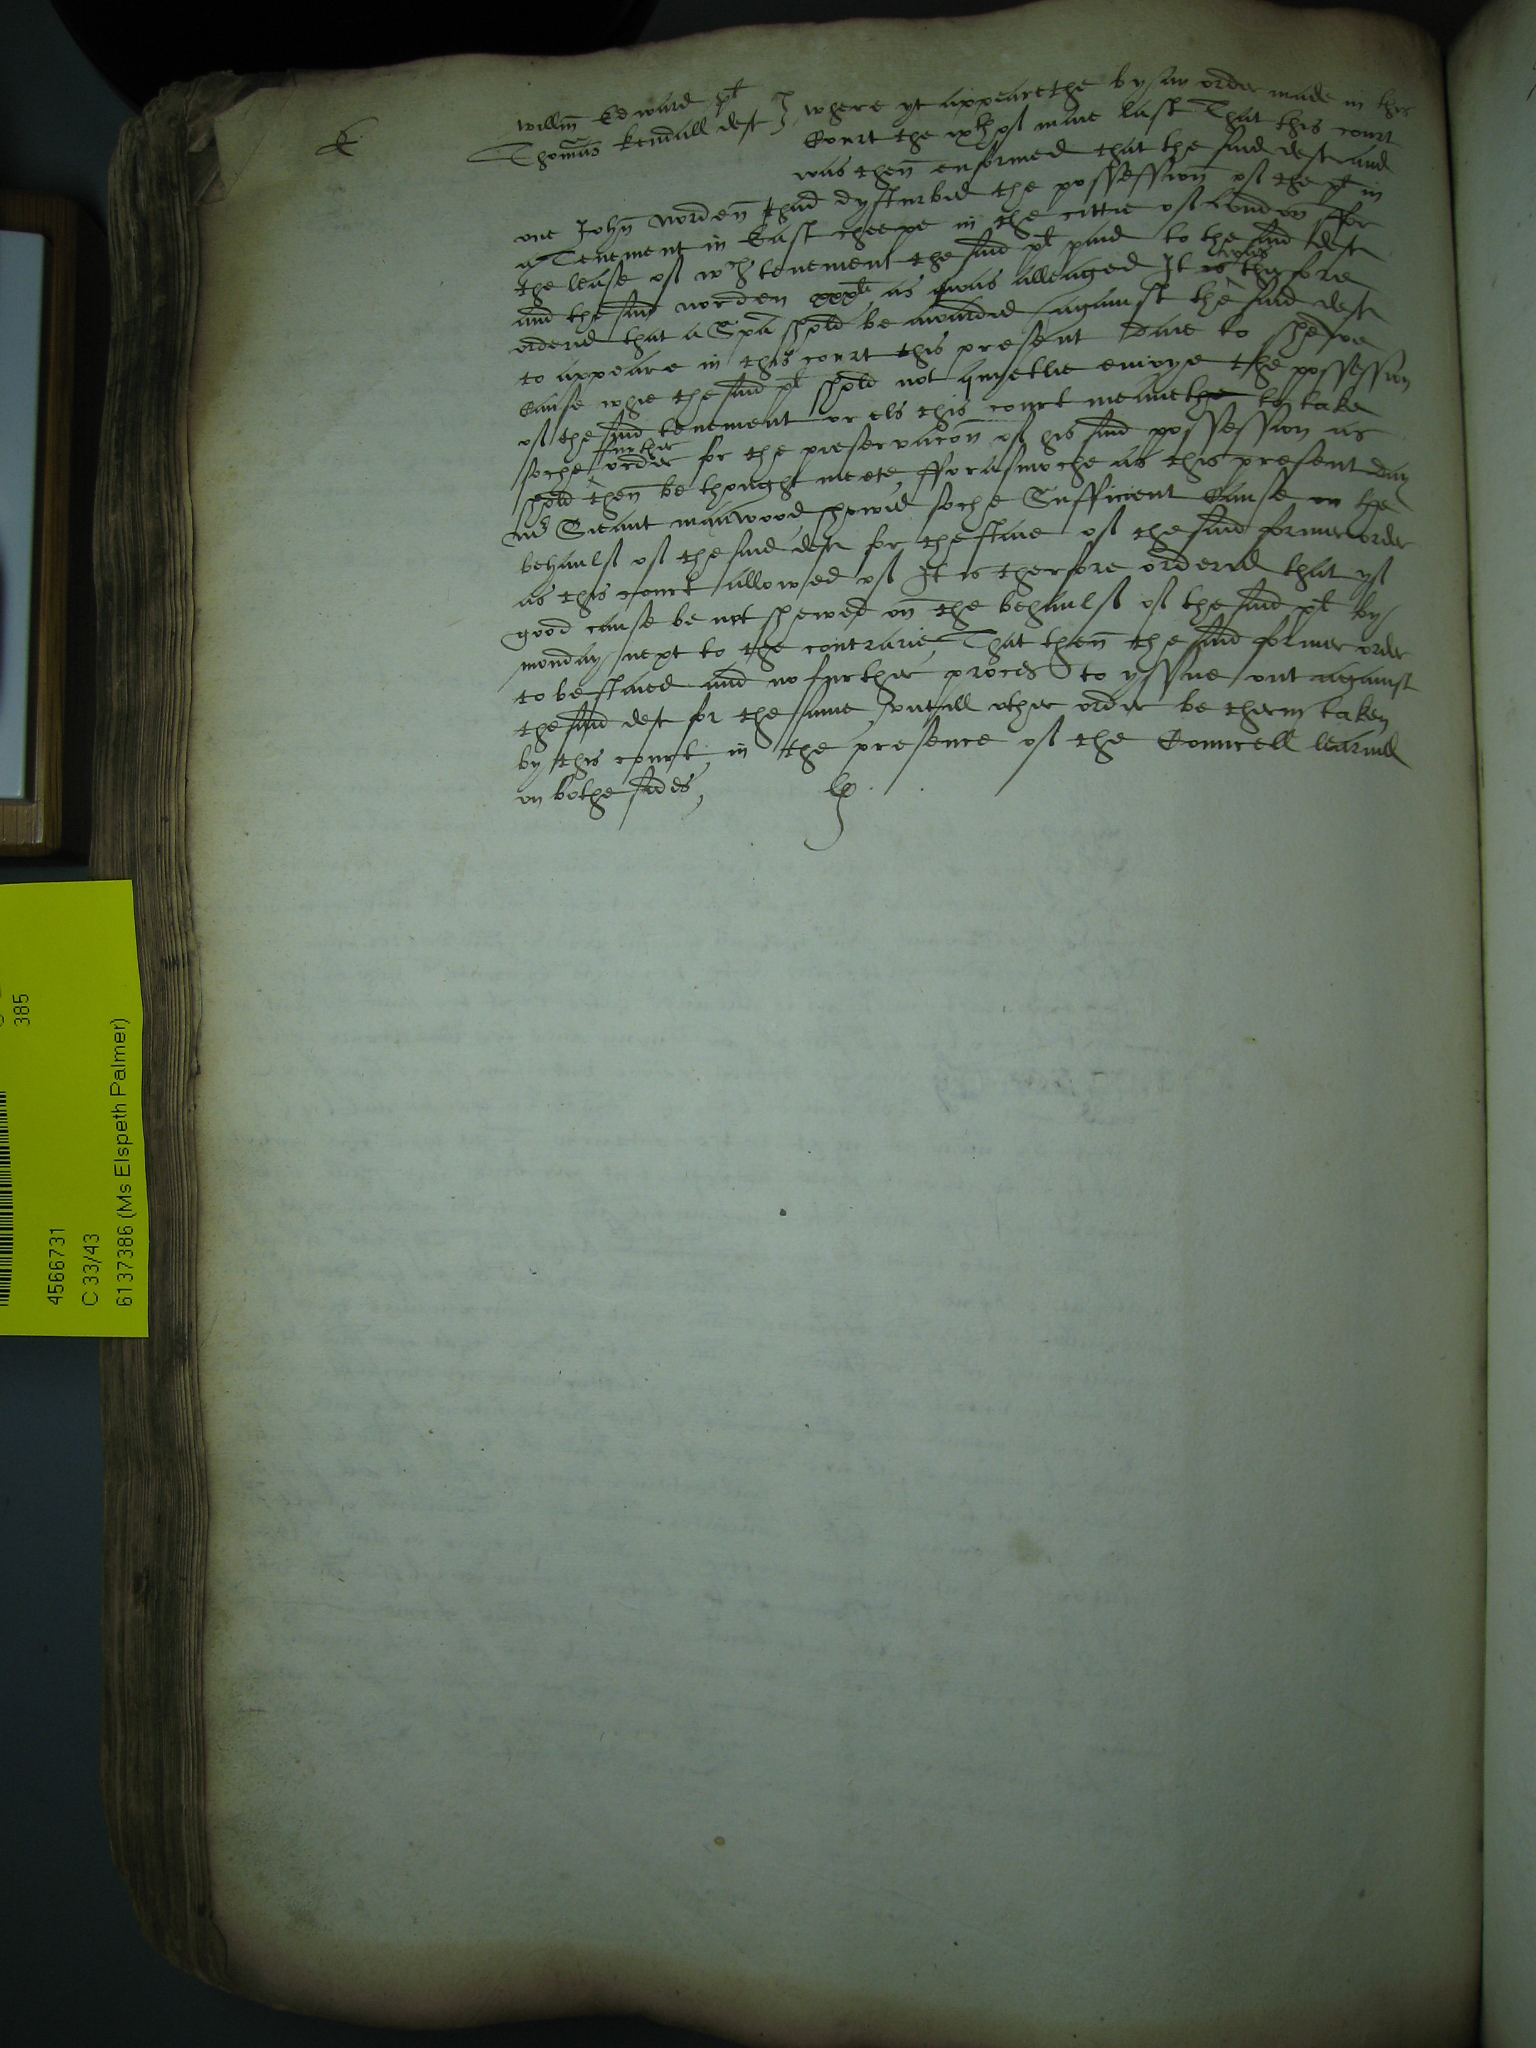 k
Willm̄ Edward pł
Thomas̄ kendall deft } where yt appearethe by an order made in this
Court the ixth of maie last That this court
was then̄ enformed that the said deft and
one John̄ Norden̄ had dysturbid the possession̄ of the pł in
a Tenement in East cheepe in the cittie of London̄ ffor
the lease of wch tenement the said pł paid to the said deft
and the said norden xxxli as was alleaged It was therfore
ordered that a Spā shold be awarded against the said deft
to appeare in this court this present daie to shewe
Cause whie the said pł shold not quyetlie enioye the possession
of the said tenement or els this court meanethe to take
soche further order for the preservacōn of his said possession as
shold then̄ be thought meete, fforasmoche as this present day
mr Sriant manwood showid soche Sufficient Cause on the
behaulf of the said deft for the staie of the said former order
as this court allowed of It is therfore ordered that yf
good cause be not shewed on̄ the behaulf of the said pł by
monday next to the contrarie, That then̄ the said former order
to be staied and no further proces to yssue out against
the said deft for the same untill other order be therin taken
by this court, in the presence of the Councell learned
on bothe sides,
385
4566731
C 33/43
6137386 (Ms Elspeth Palmer)